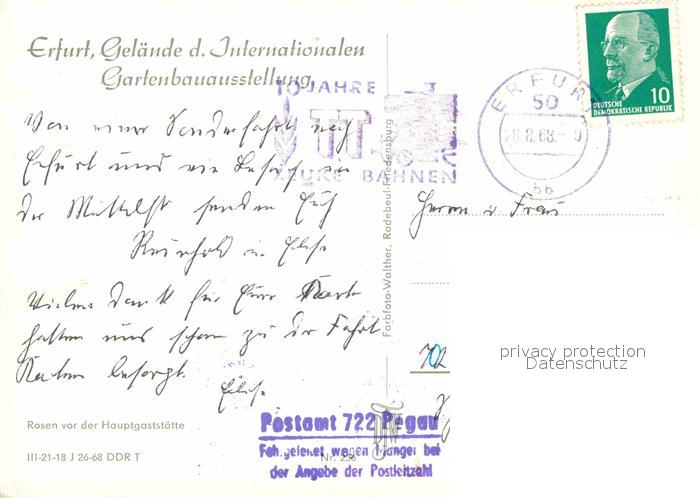 Erfurt, Gelände d. Internationalen
Gartenbauausstellung
10 JAHRE
TT
ZEUKE BAHNEN
ERFURT
50
28.8.68
bb
DEUTSCHE
DEMOKRATISCHE REPUBLIK
10
Von einer Sonderfahrt nach
Erfurt und ein Besuch in
der senden Euch
Reinhold u. Elise
Vielen Dank für Eure Karte
hatten uns schon zu der Fahrt
Karten besorgt.
Elise
Herrn u. Frau
702
privacy protection
Datenschutz
Farbfoto-Walther, Radebeul-Friedensburg
Rosen vor der Hauptgaststätte
III-21-18 J 26-68 DDR T
Nr.
Postamt 722 Pegau
Fehlgeleitet wegen Mangel bei
der Angabe der Postleitzahl